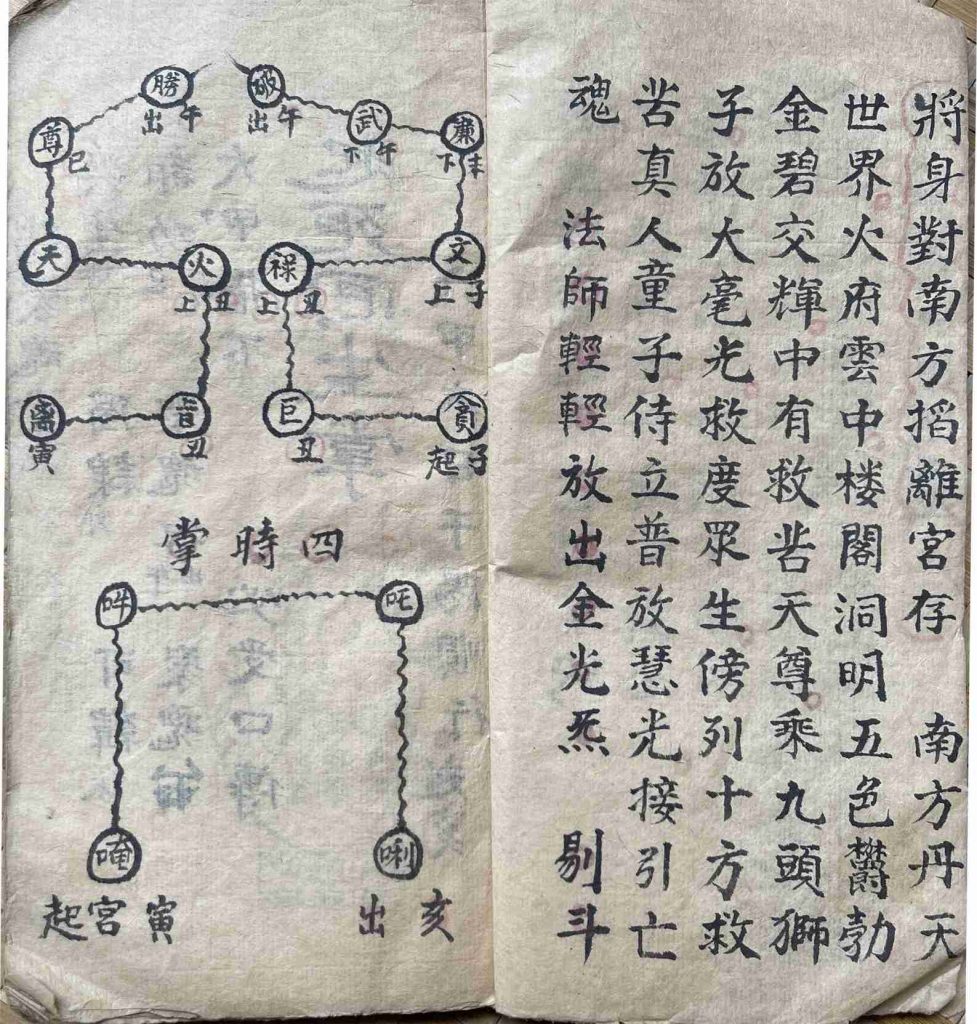 將身對南方搯離宮存　南方丹天
世界火府雲中楼閣洞明五色欝勃
金碧交輝中有救苦天尊乘九頭獅
子放大毫光救度眾生傍列十方救
苦真人童子侍立普放慧光接引亡
魂　法師輕輕放出金光炁　剔斗
破
午出
勝
午出
武
午下
廉
未下
尊
巳
文
子上
禄
丑上
火
丑上
夫
貪
子起
巨
丑
丑
离
寅
四時掌
吒
吽
唎
亥出
唵
寅宮起